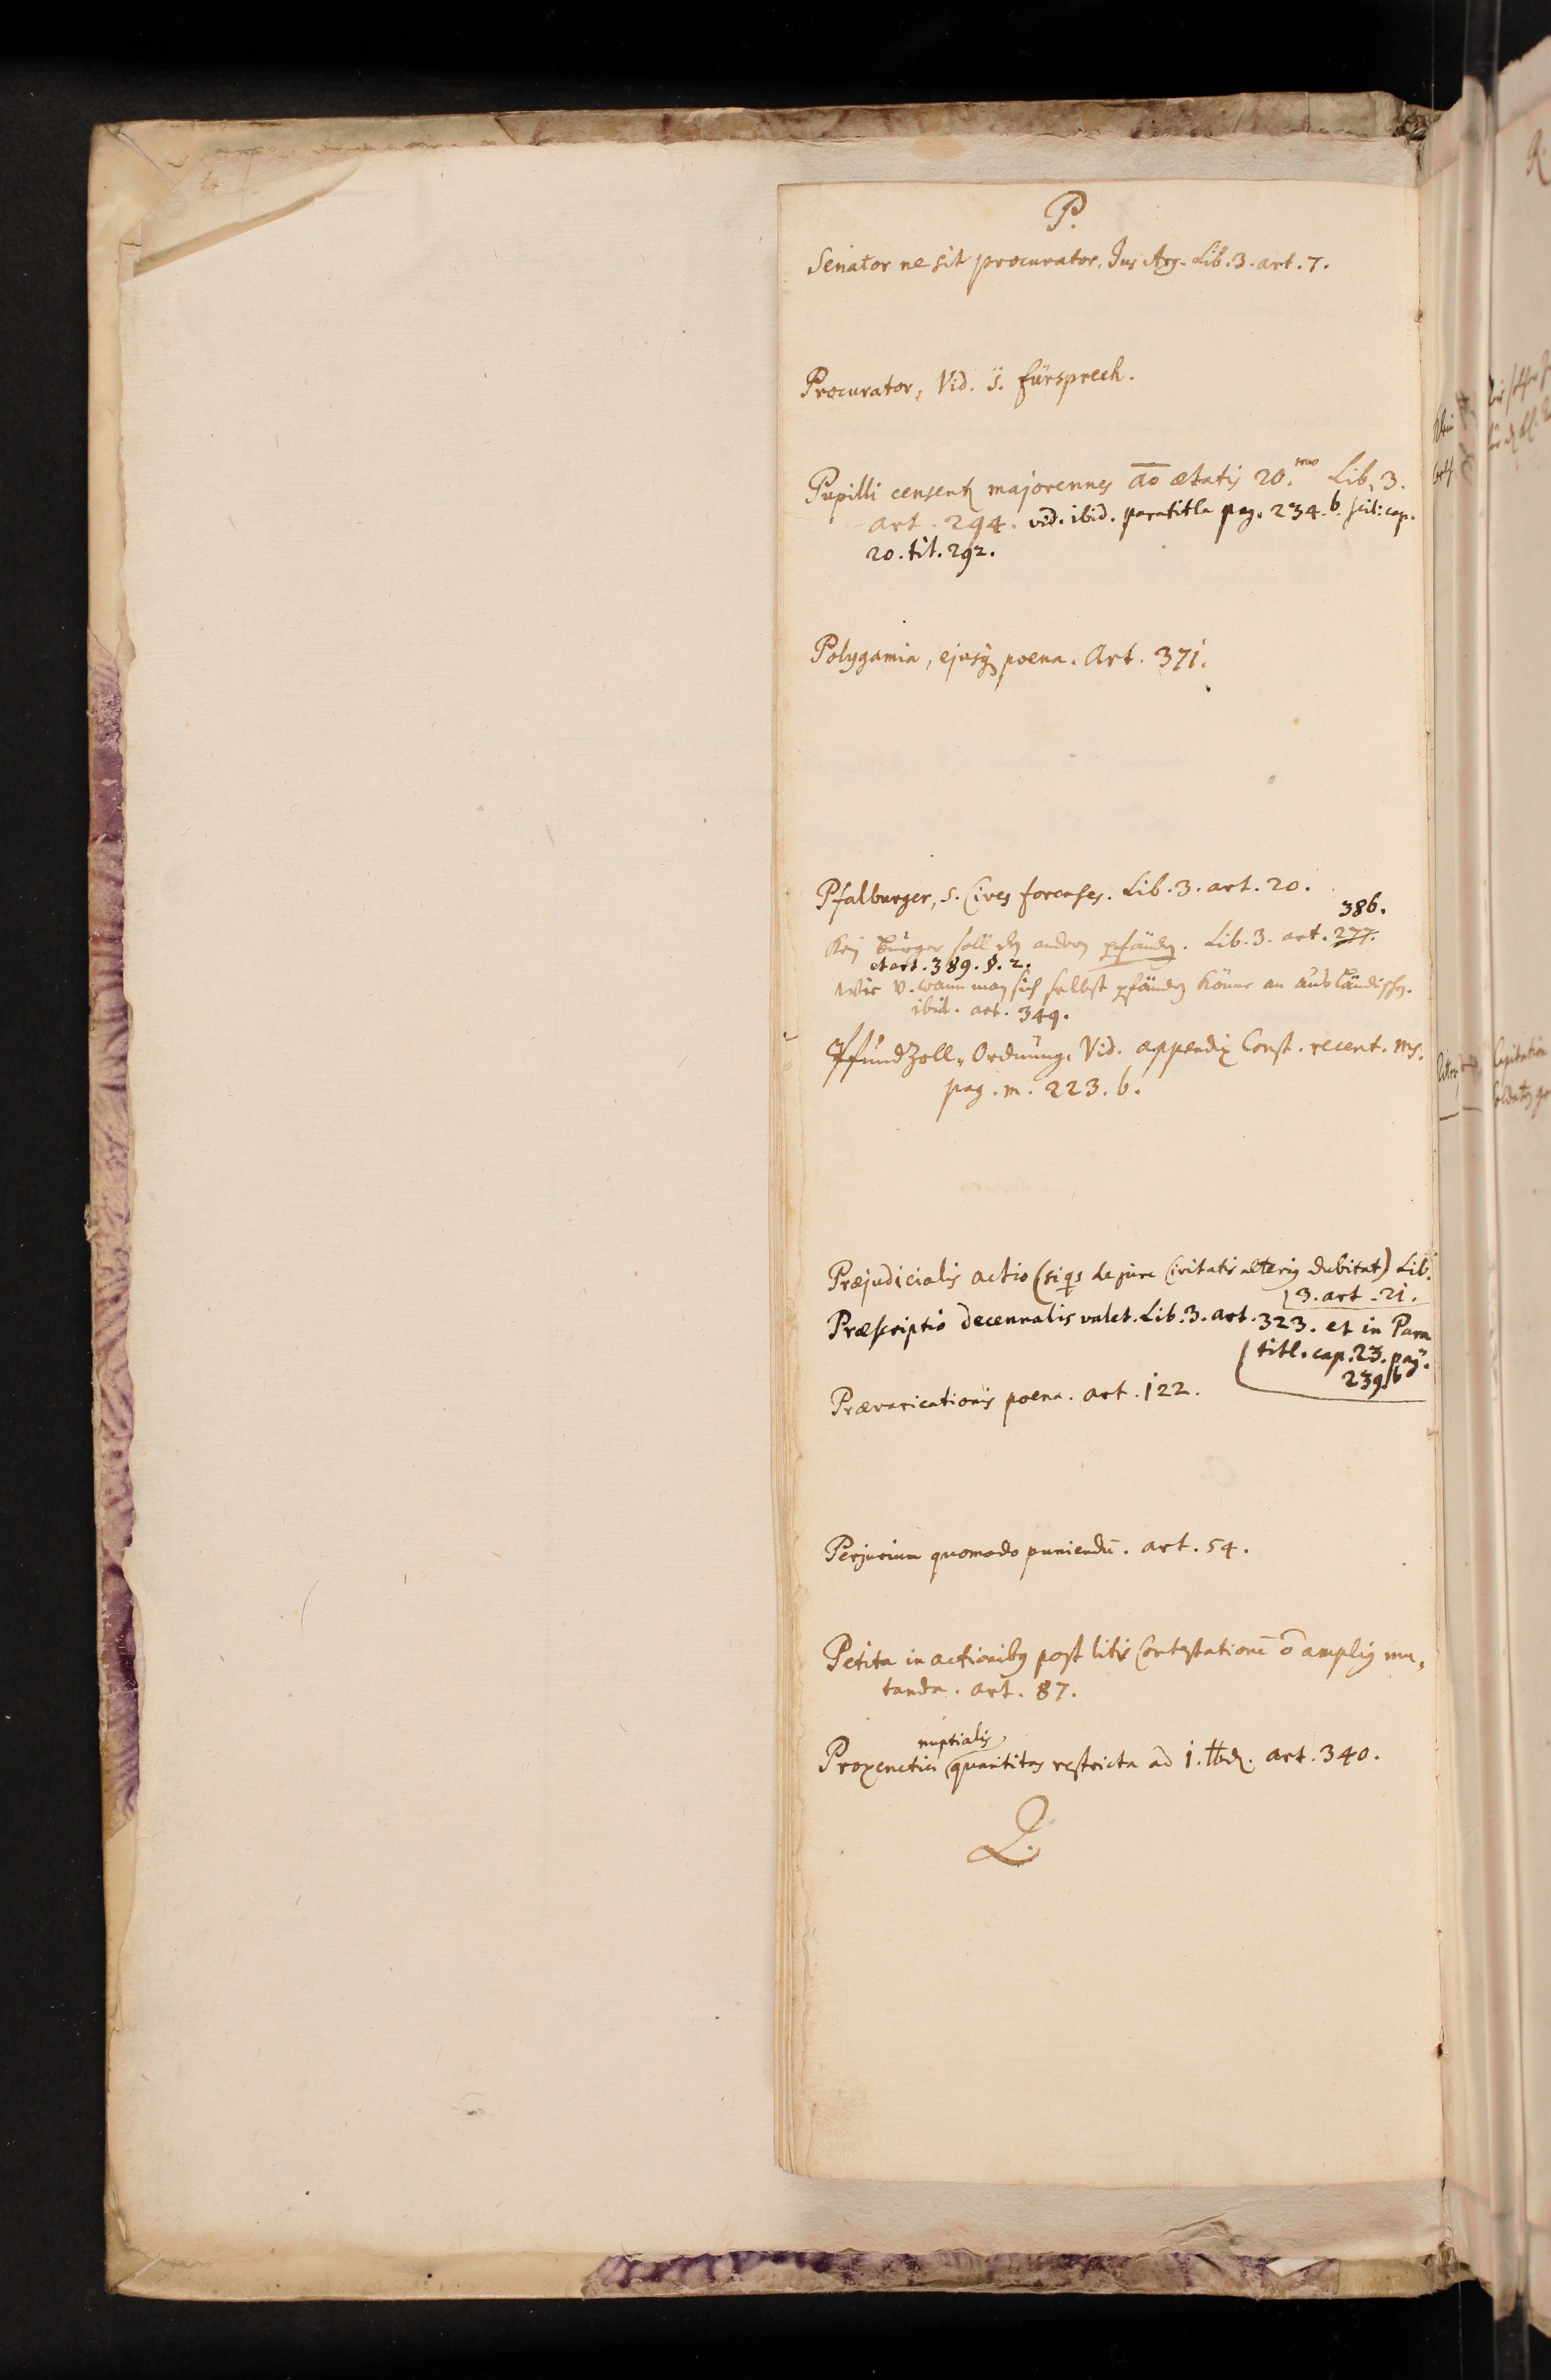 P.
Senator ne sit procurator. Jus Arg. Lib. 3. art. 7.
Procurator, Vid. s. fürsprech.
Pupilli censentr majorennes ao ætatis 20.mo Lib. 3.
art. 294. vid. ibid. paratitla pag. 234. b. scil: cap.
20. tit. 292.
Polygamia, ejusq poena. Art. 371.
Pfalburger, s. Cives forenses. Lib. 3. art. 20.
386.
Kein burger soll den andern pfänden. Lib. 3. art. 277.
et art. 389. §. 2.
Wie v. wann man sich selbst pfänden könne an ausländischen.
ibid. art. 349.
PfundZoll-Ordnung. Vid. appendix Const. recent. ms.
pag. m. 223. b.
Præjudicialis actio (siqs de jure Civitatis alterius dubitat) Lib.
3. art. 21.
Præscriptio decennalis valet. Lib. 3. art. 323. et in Para
titl. cap. 23. pag.
239. b
Prævaricationis poena. art. 122.
Perjurium quomodo puniendū. art. 54.
Petita in actionibus post litis Contestationē ō amplius mu-
tanda. art. 87.
nuptialis
Proxenetici quantitas restricta ad 1. lbd. art. 340.
Q.
R.